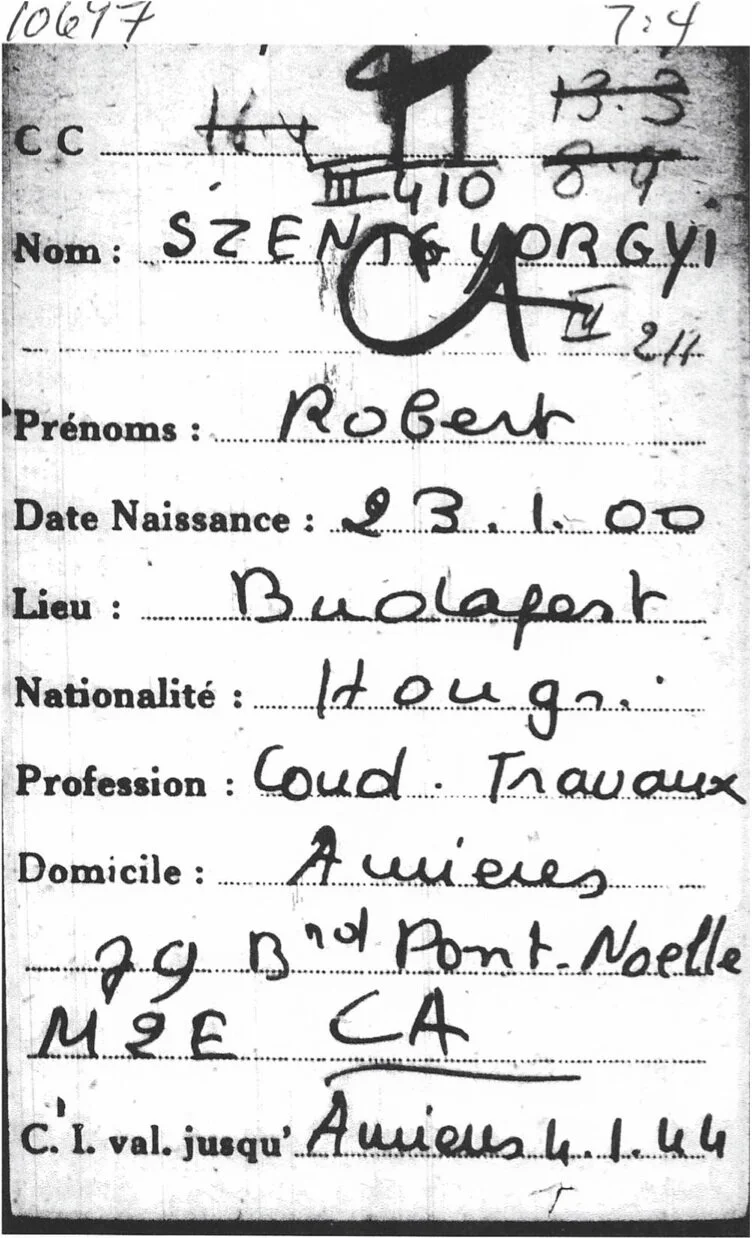 10647 7.4
13.3
CC 16 4 8.9
III 410
Nom : SZENTGYORGYI
A II 211
Prénoms : Robert
Date Naissance : 23.1.00
Lieu : Budapest
Nationalité : Hongr.
Profession : Cond. Travaux
Domicile : Amiens
79 Bard Pont-Noelle
M2E CA
C. I. val. jusqu' Amiens 4.1.44